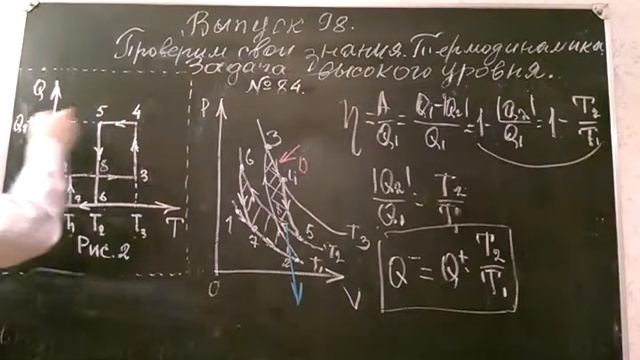 Выпуск 98.
Проверим свои знания. Термодинамика.
Задача высокого уровня.
№ 24.
Q
5 4
8 3
6
T₁ T₂ T₃ T
Рис. 2
P
3
6
4
1
7
5
2
T₃
T₂
T₁
0
V
η = A/Q₁ = (Q₁-|Q₂|)/Q₁ = 1 - |Q₂|/Q₁ = 1 - T₂/T₁
|Q₂|/Q₁ = T₂/T₁
Q⁻ = Q⁺ · T₂/T₁